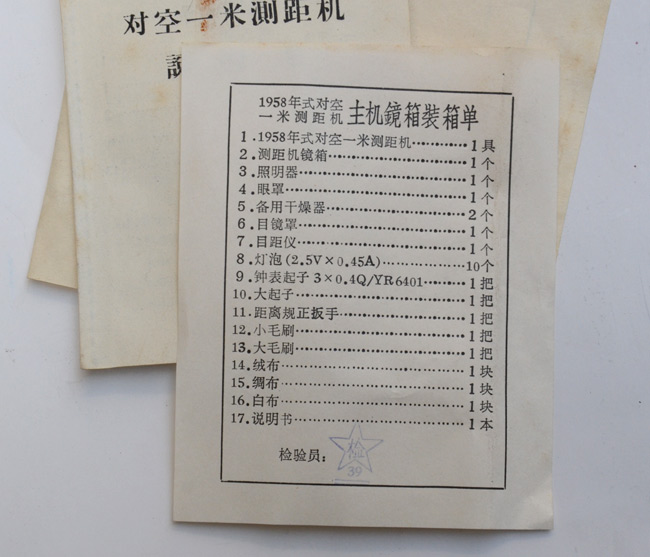 对空一米测距机
説
1958年式对空
一米测距机 主机鏡箱裝箱单
1.1958年式对空一米测距机············1具
2.测距机镜箱··················1个
3.照明器··················1个
4.眼罩··················1个
5.备用干燥器··················2个
6.目镜罩··················1个
7.目距仪··················1个
8.灯泡(2.5V×0.45A)··················10个
9.钟表起子3×0.4Q/YR6401············1把
10.大起子··················1把
11.距离规正扳手··················1把
12.小毛刷··················1把
13.大毛刷··················1把
14.绒布··················1块
15.绸布··················1块
16.白布··················1块
17.说明书··················1本
检验员：
检
39